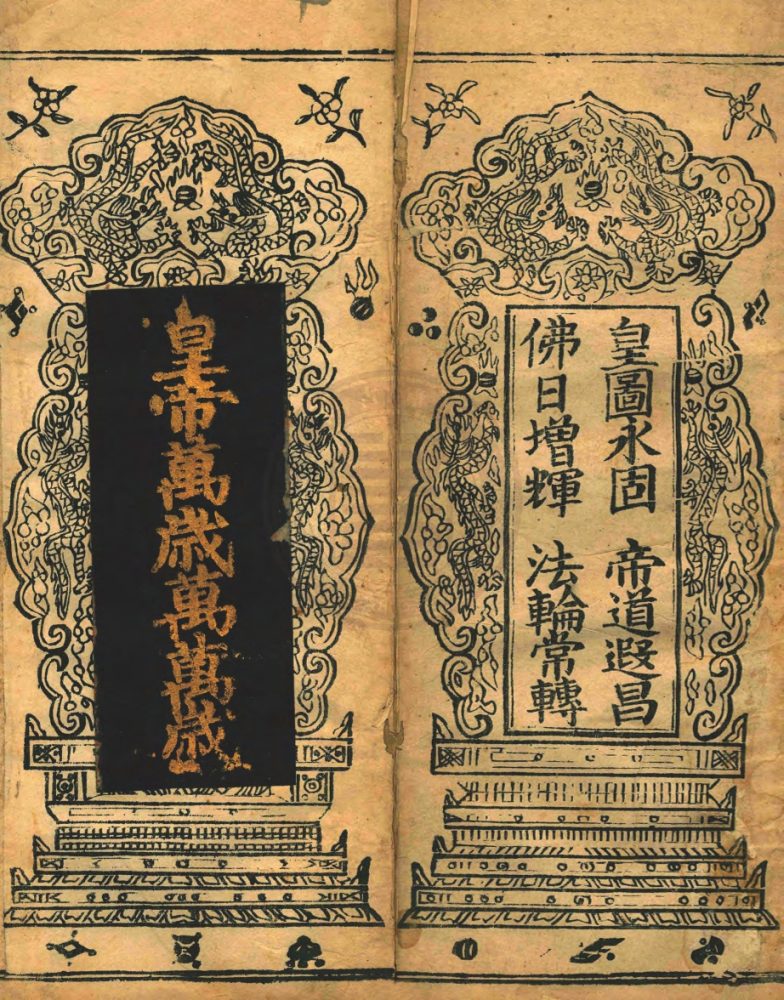 皇圖永固 帝道遐昌
佛日增輝 法輪常轉
皇帝萬歲萬萬歲